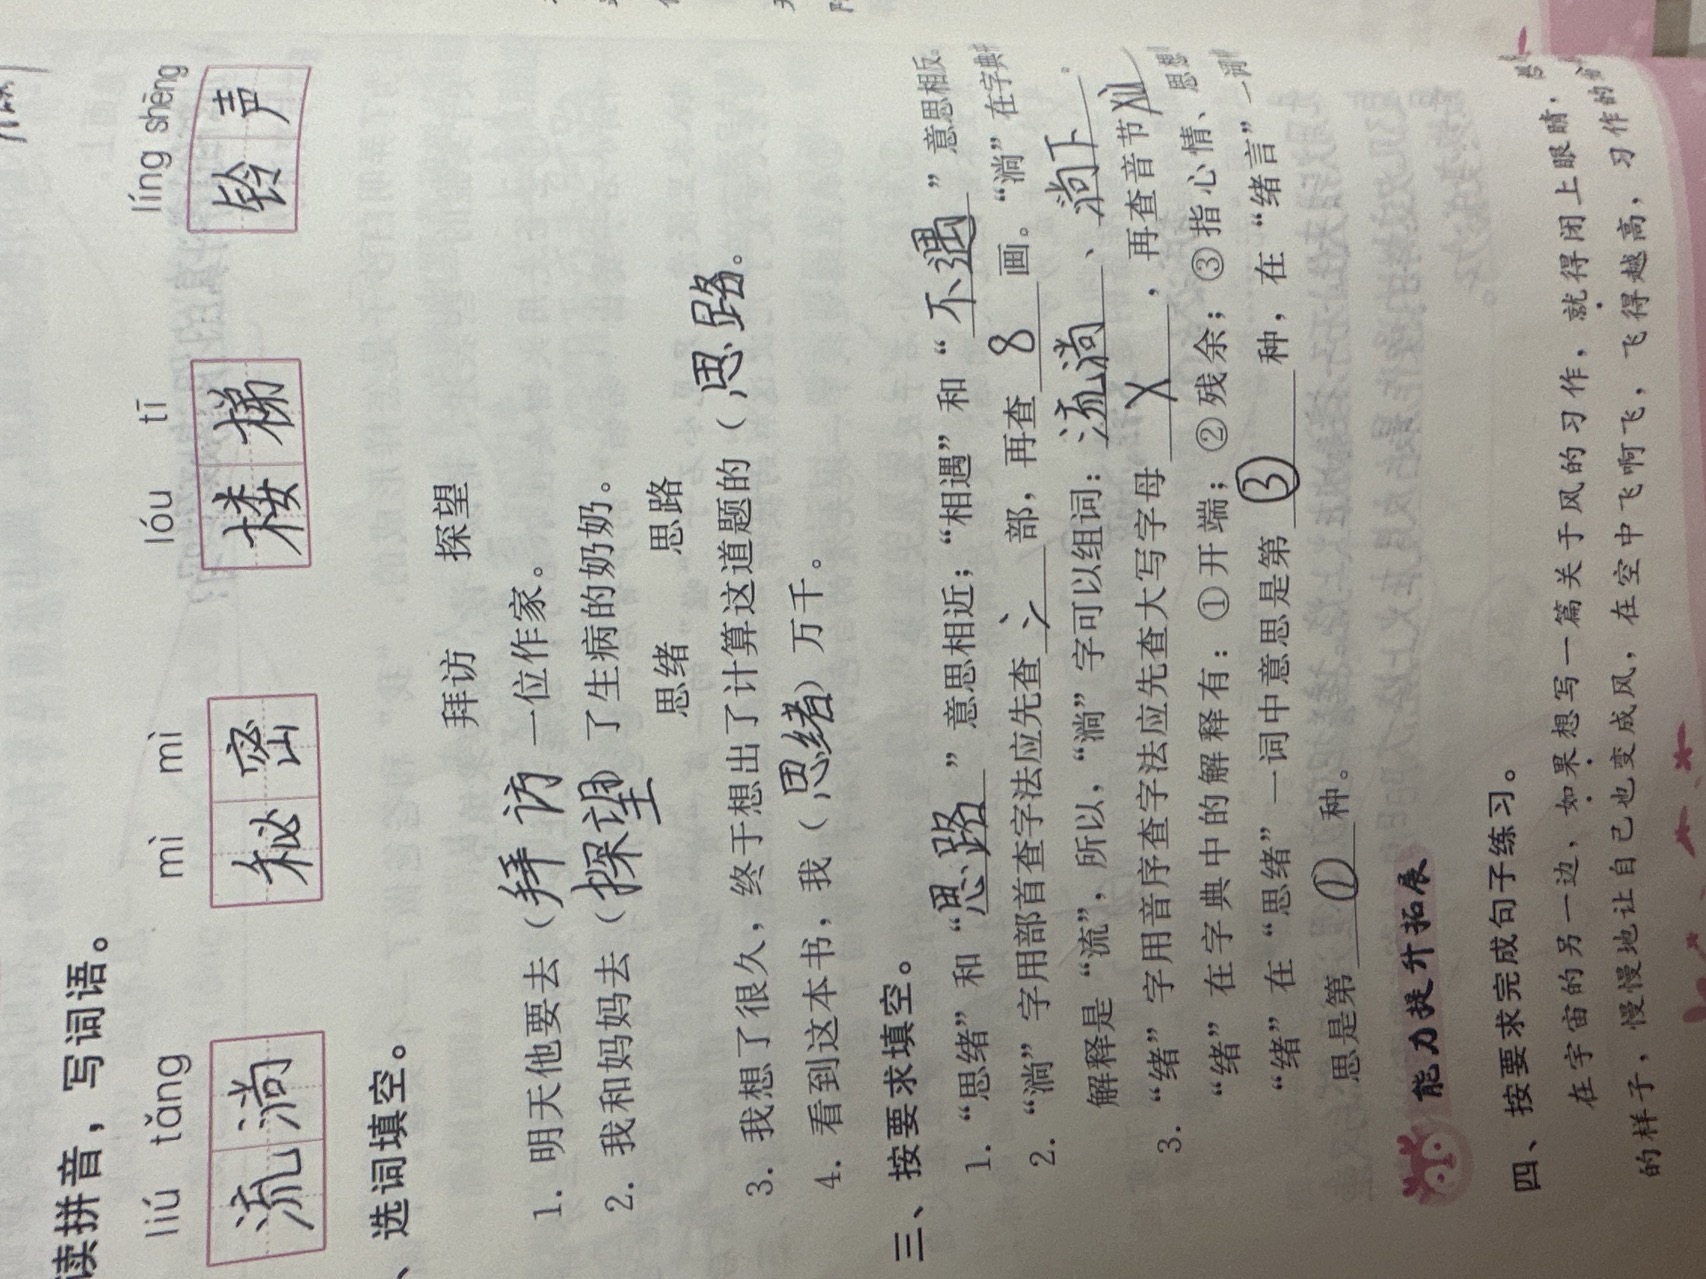 读拼音，写词语。
liú tǎng mì mì lóu tī líng shēng
流淌 秘密 楼梯 铃声
、选词填空。
拜访 探望
1. 明天他要去（拜访 一位作家。
2. 我和妈妈去（探望 了生病的奶奶。
思绪 思路
3. 我想了很久，终于想出了计算这道题的（思路。
4. 看到这本书，我（思绪）万千。
三、按要求填空。
1. “思绪”和“思路”意思相近；“相遇”和“不遇”意思相反。
2. “淌”字用部首查字法应先查氵部，再查8画。“淌”在字典
解释是“流”，所以，“淌”字可以组词：流淌、淌下。
3. “绪”字用音序查字法应先查大写字母X，再查音节xu
“绪”在字典中的解释有：①开端；②残余；③指心情、思想
“绪”在“思绪”一词中意思是第③种，在“绪言”一词
思是第①种。
能力提升拓展
四、按要求完成句子练习。
在宇宙的另一边，如果想写一篇关于风的习作，就得闭上眼睛，
的样子，慢慢地让自己也变成风，在空中飞啊飞，飞得越高，习作的